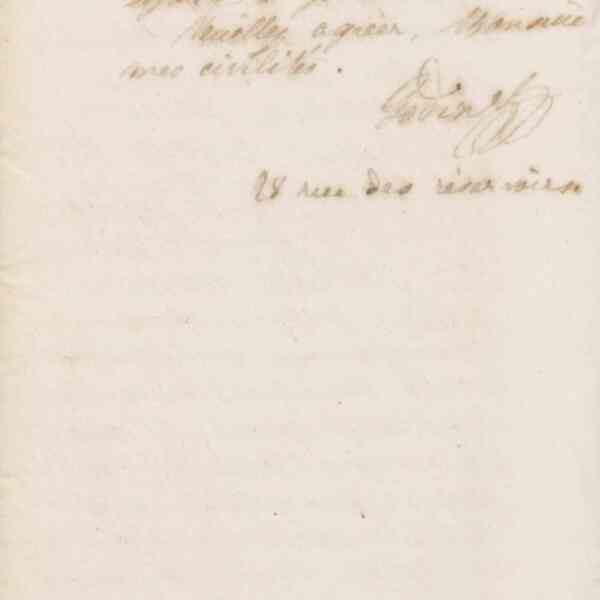 Veuillez agréer, Monsieur
mes civilités.
Godin
28 rue des réservoirs